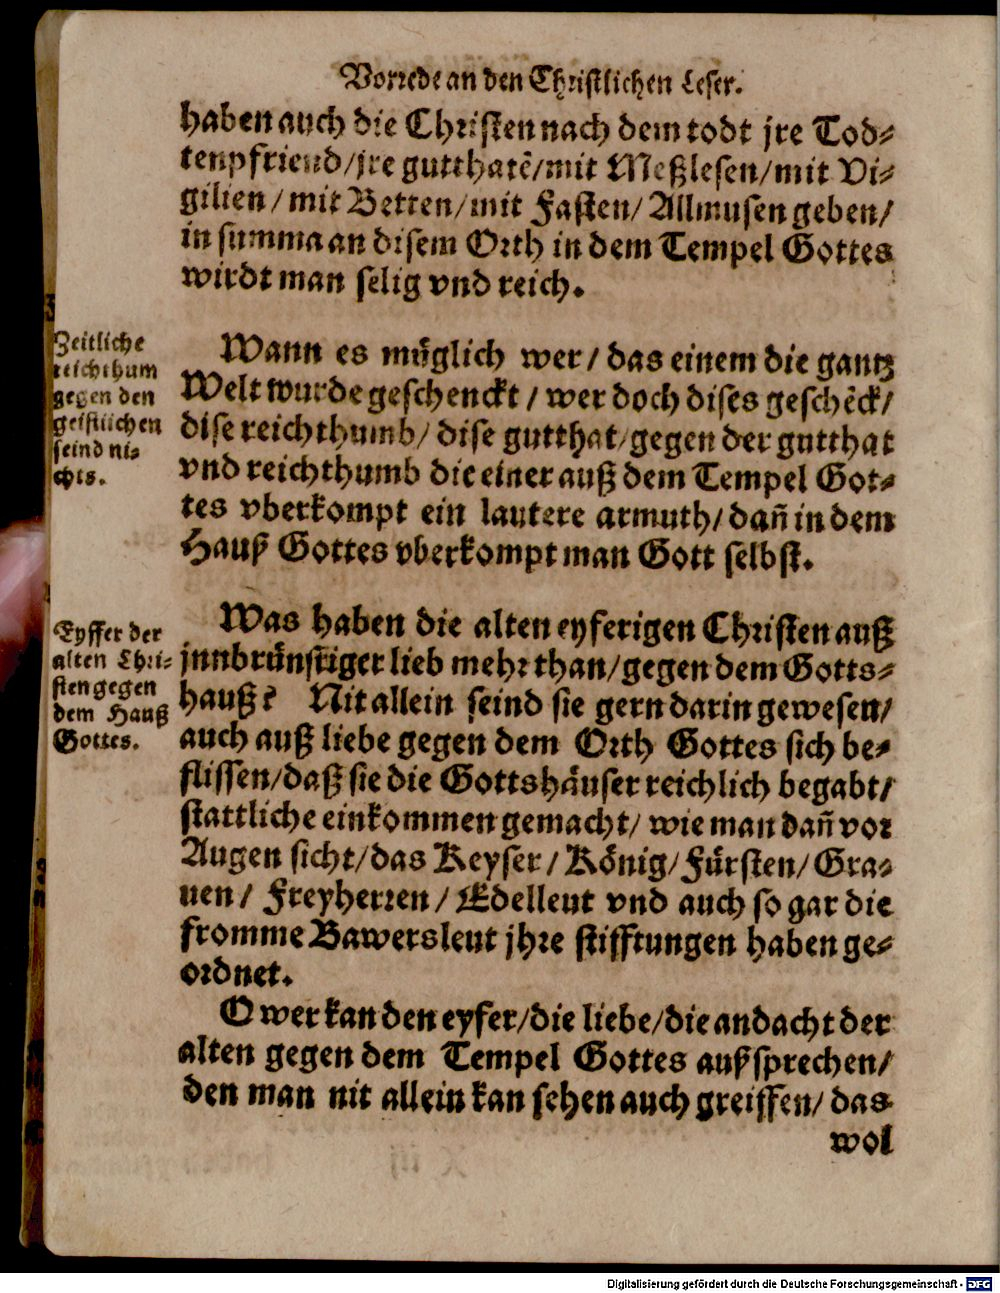 Vorrede an den Christlichen Leser.
haben auch die Christen nach dem todt jre Tod⸗
tenpfriend/jre gutthatẽ/mit Meßlesen/mit Vi⸗
gilien/mit Betten/mit Fasten/Allmusen geben/
in summa an disem Orth in dem Tempel Gottes
wirdt man selig vnd reich.
Zeitliche
reichthum
gegen den
geistlichen
seind ni⸗
chts.
Wann es müglich wer/das einem die gantz
Welt wurde geschenckt/wer doch dises geschẽck/
dise reichthumb/dise gutthat/gegen der gutthat
vnd reichthumb die einer auß dem Tempel Got⸗
tes vberkompt ein lautere armuth/dañ in dem
Hauß Gottes vberkompt man Gott selbst.
Eyffer der
alten Chri⸗
sten gegen
dem Hauß
Gottes.
Was haben die alten eyferigen Christen auß
jnnbrünstiger lieb mehr than/gegen dem Gotts⸗
hauß? Nit allein seind sie gern darin gewesen/
auch auß liebe gegen dem Orth Gottes sich be⸗
flissen/daß sie die Gottshäuser reichlich begabt/
stattliche einkommen gemacht/wie man dañ vor
Augen sicht/das Keyser/König/Fürsten/Gra⸗
uen/Freyherren/Edelleut vnd auch so gar die
fromme Bawersleut jhre stifftungen haben ge⸗
ordnet.
O wer kan den eyfer/die liebe/die andacht der
alten gegen dem Tempel Gottes außsprechen/
den man nit allein kan sehen auch greiffen/das
wol
Digitalisierung gefördert durch die Deutsche Forschungsgemeinschaft - DFG